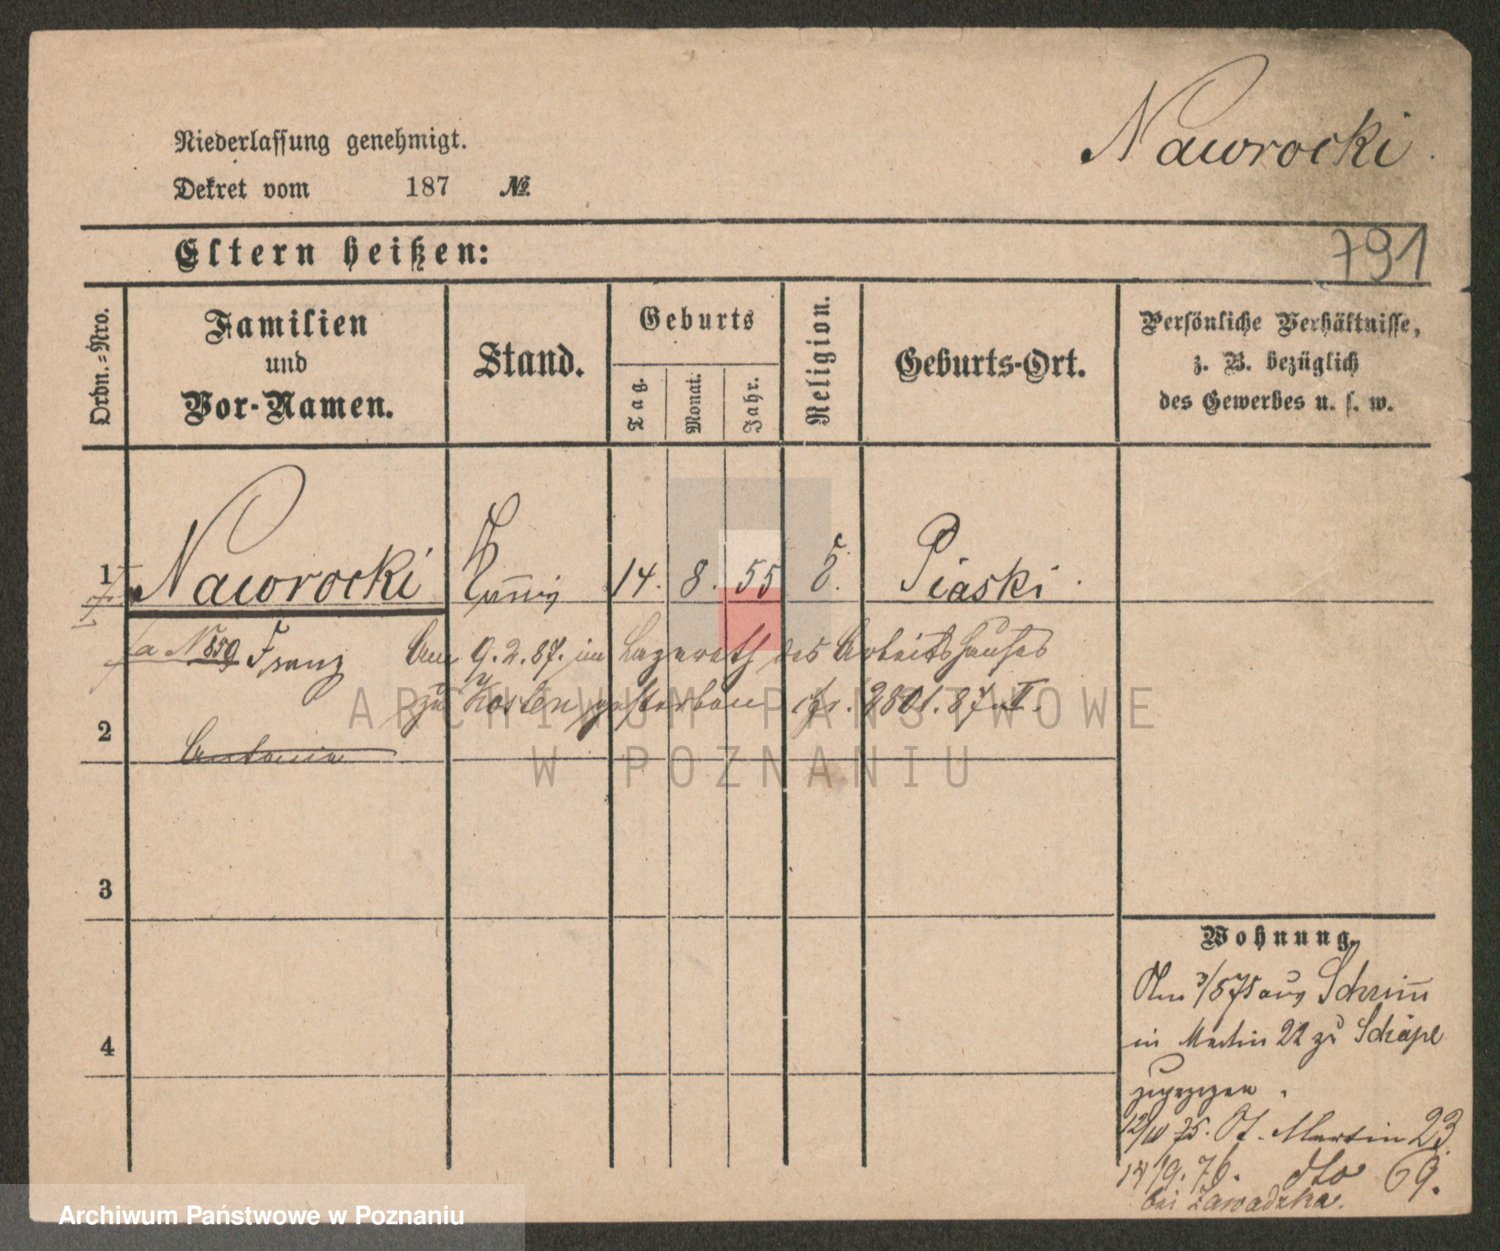 Nawrocki.
Niederlassung genehmigt.
Dekret vom 187 №
Eltern heißen:
791
Ordn.-Nro.
Familien
und
Vor-Namen.
Stand.
Geburts
Tag.
Monat.
Jahr.
Religion.
Geburts-Ort.
Persönliche Verhältnisse,
z. B. bezüglich
des Gewerbes u. s. w.
1
Nawrocki
14. 8. 55
Piaski.
Franz
Am 9.2.87. im Lazareth des Arbeitshauses
zu Kosten gestorben
2801.87. II.
2
Antonia
3
4
Wohnung.
aus Schrim
in Martin 22 zu
zugezogen.
75. St. Martin 23
14/9. 76. dto 69.
bei Zawadzka.
ARCHIWUM PAŃSTWOWE
W POZNANIU
Archiwum Państwowe w Poznaniu